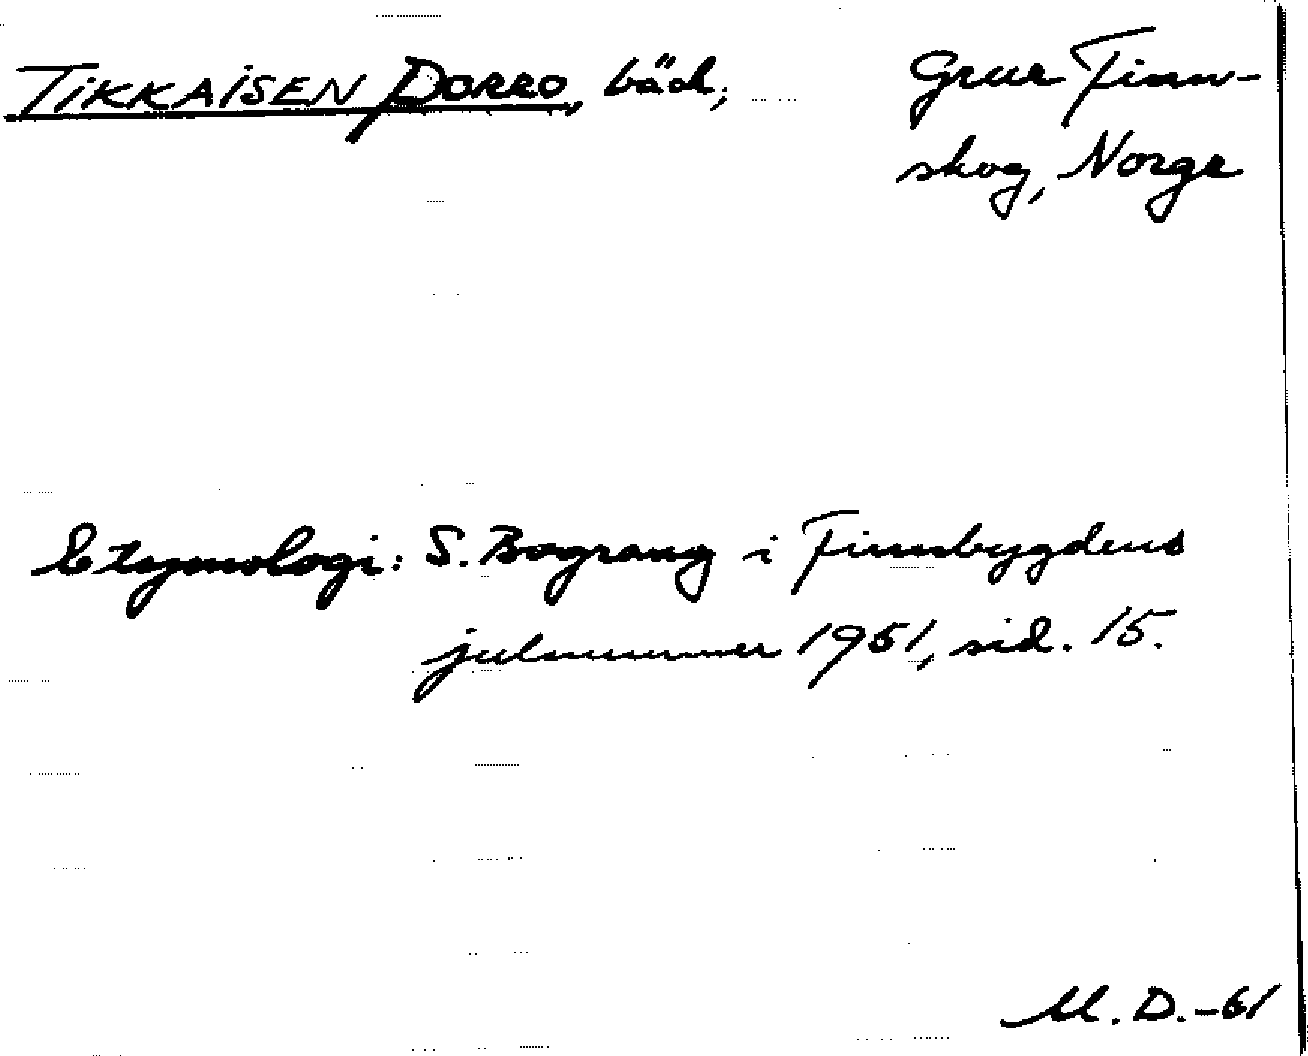 TIKKAISEN PORRO, bäck,
Grue Finn-
skog, Norge
Etymologi: S. Bograng i Finnbygdens
julnummer 1961, sid. 15.
M. D. -61